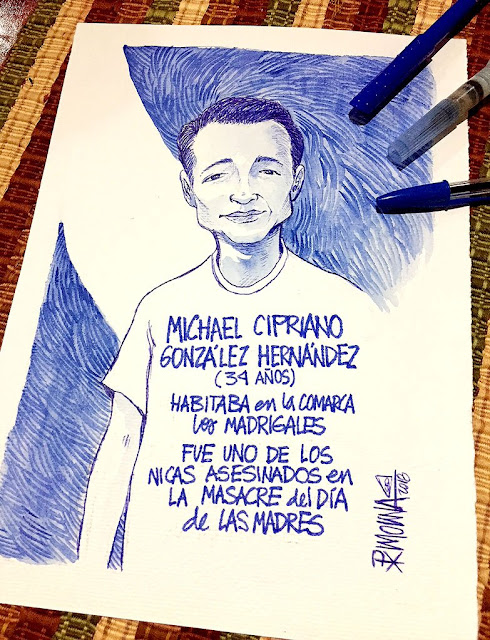 MICHAEL CIPRIANO
GONZÁLEZ HERNÁNDEZ
(34 AÑOS)
HABITABA en la COMARCA
los MADRIGALES
FUE UNO DE LOS
NICAS ASESINADOS en
LA MASACRE del DÍA
de LAS MADRES